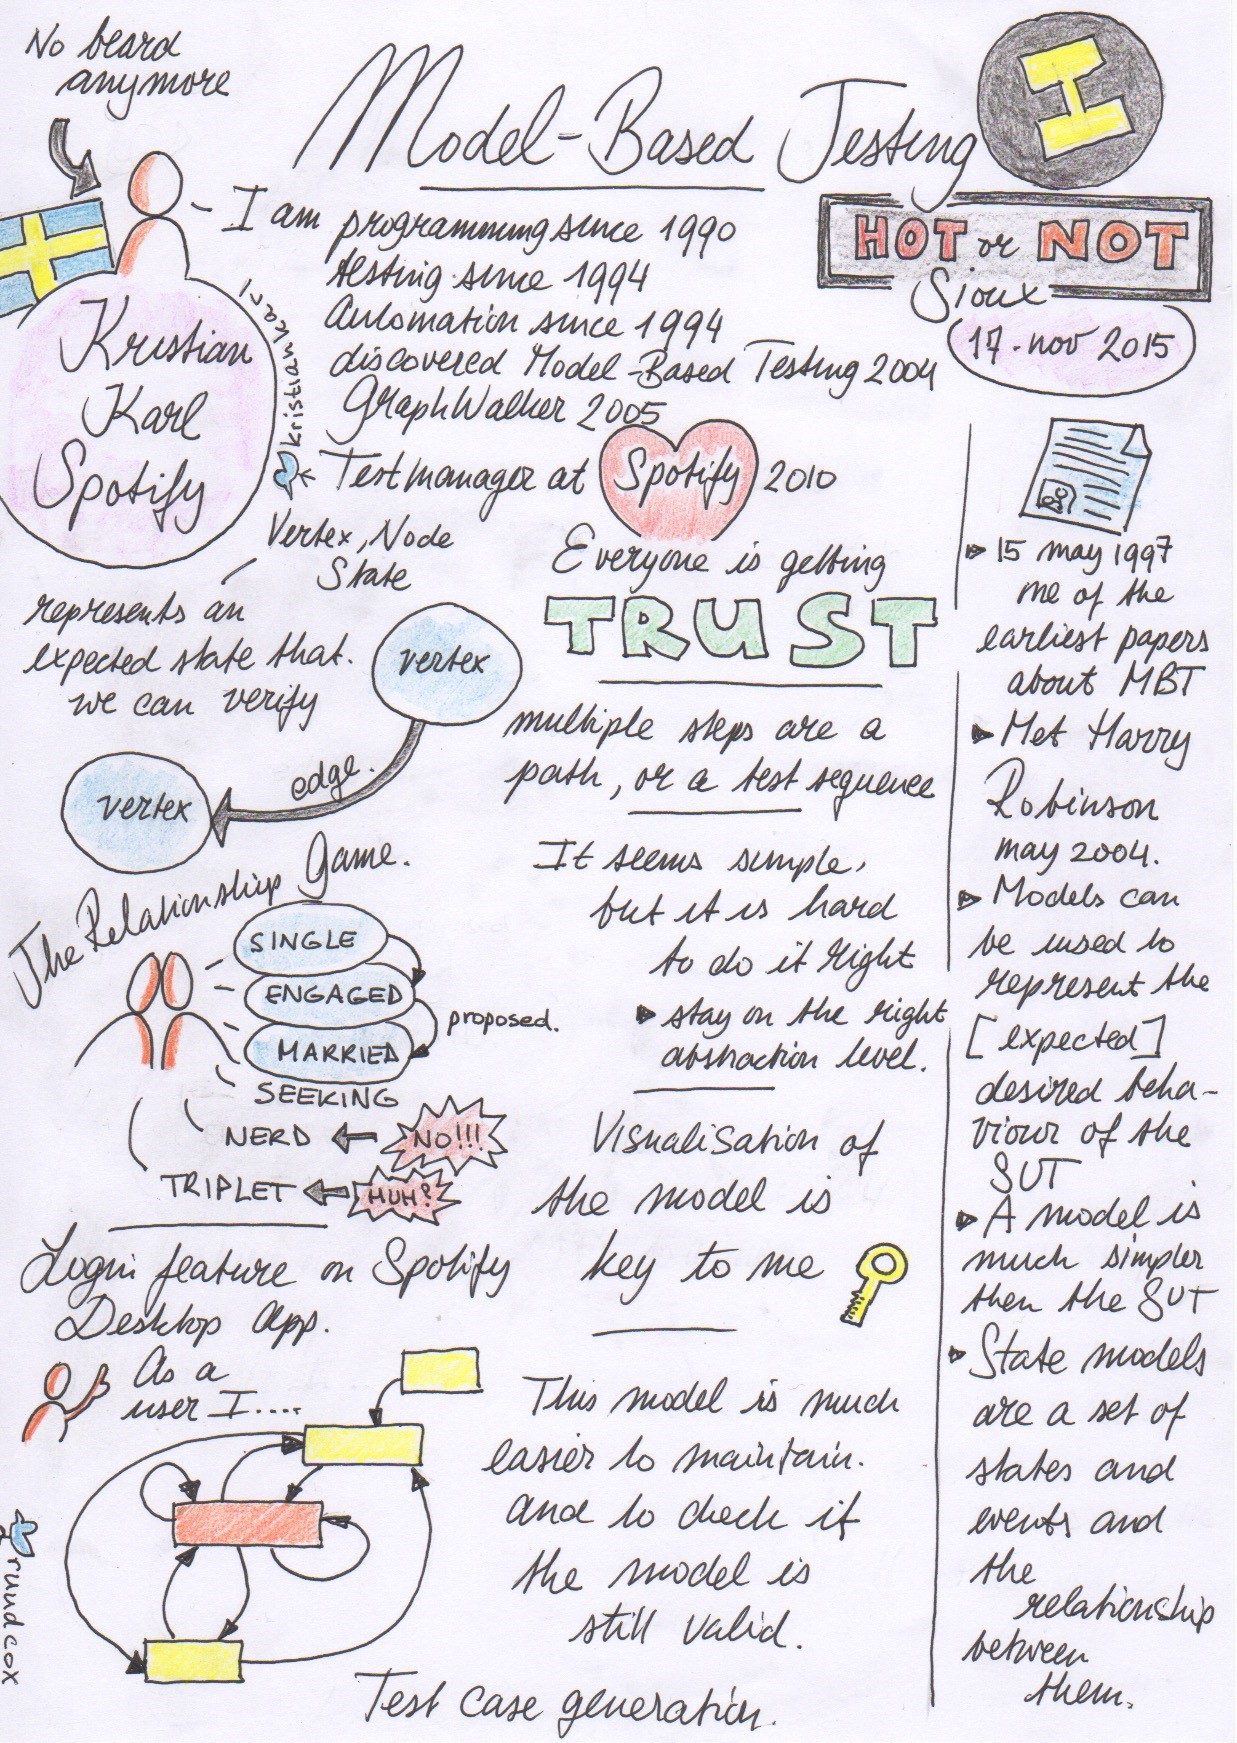 No beard
anymore
Model-Based Testing
HOT or NOT
Sioux
17. nov 2015
Kristian
Karl
Spotify
kristiankarl
I am programming since 1990
testing since 1994
Automation since 1994
discovered Model-Based Testing 2004
GraphWalker 2005
Testmanager at Spotify 2010
Vertex, Node
State
represents an
expected state that.
we can verify
vertex
edge.
vertex
Everyone is getting
TRUST
multiple steps are a
path, or a test sequence
The Relationship Game.
SINGLE
ENGAGED
MARRIED
proposed.
SEEKING
NERD
NO!!!
TRIPLET
HUH?
It seems simple,
but it is hard
to do it right
stay on the right
abstraction level.
Visualisation of
the model is
key to me
Login feature on Spotify
Desktop app.
As a
user I....
This model is much
easier to maintain.
and to check if
the model is
still valid.
Test case generation.
ruudcox
15 may 1997
me of the
earliest papers
about MBT
Met Harry
Robinson
may 2004.
Models can
be used to
represent the
[expected]
desired beha-
viour of the
SUT
A model is
much simpler
then the SUT
State models
are a set of
states and
events and
the
relationship
between
them.